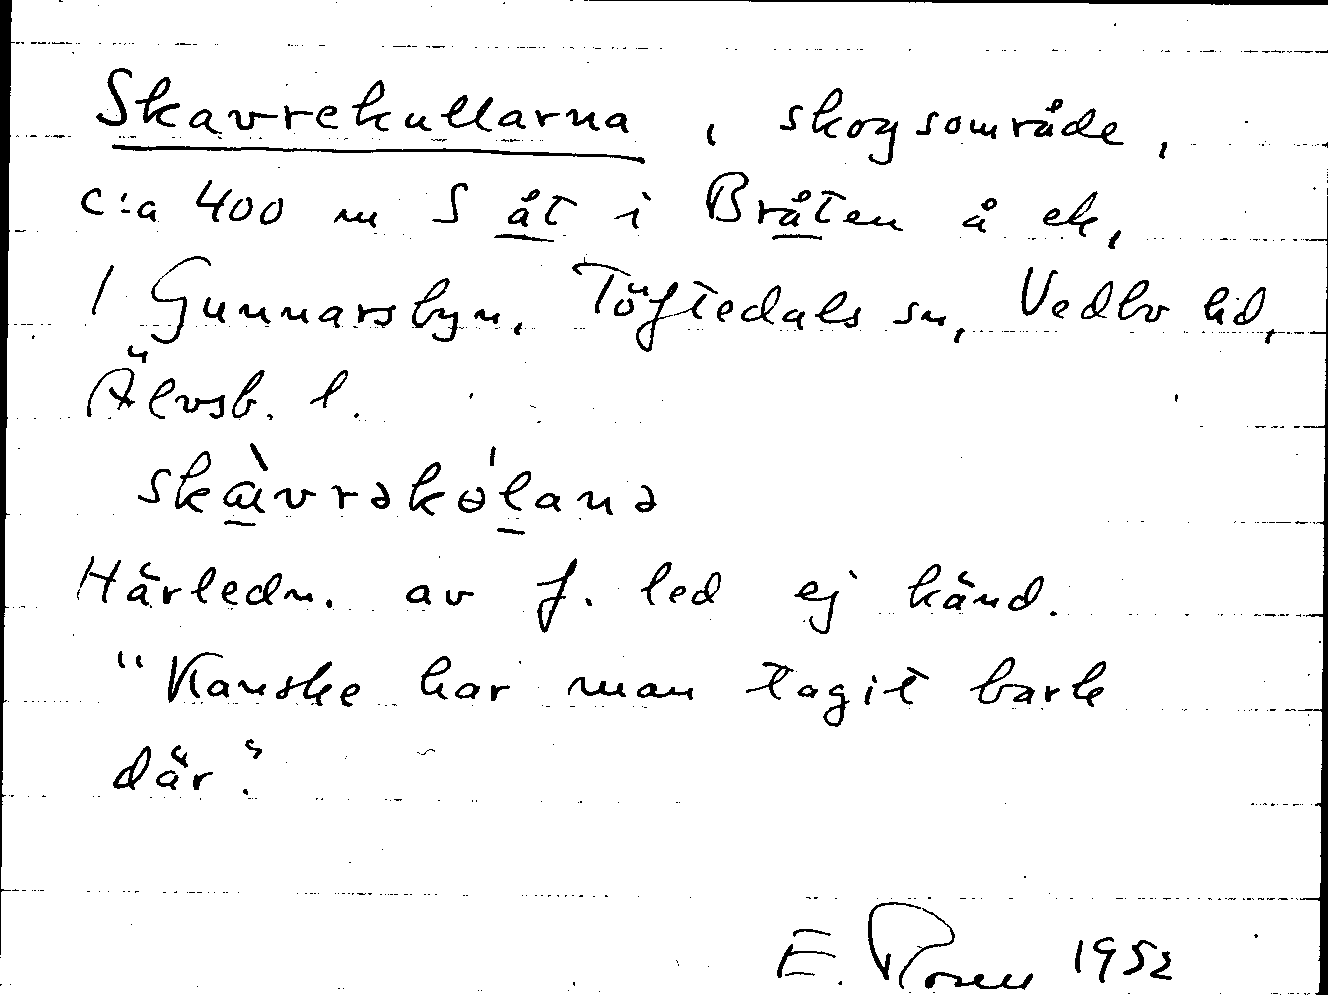 Skavrekullarna, skogsområde,
c:a 400 m S åt i Bråten å ek,
1 Gunnarsbyn, Töftedals sn, Vedbo hd,
Älvsb. l.
skɑ̀vrəkɵ́lanə
Härledn. av f. led ej känd.
"Kanske har man tagit bark
där".
E. Rosen 1952